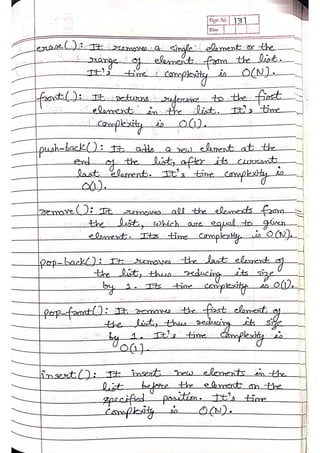 Page No. 131
Date
erase(): It removes a single element or the
range of element from the list.
It's time complexity is O(N).
front(): It returns reference to the first
element in the list. It's time
complexity is O(1).
push-back(): It adds a new element at the
end of the list, after its current
last element. It's time complexity is
O(1).
remove(): It removes all the elements from
the list, which are equal to given
element. Its time complexity is O(N).
pop-back(): It removes the last element of
the list, thus reducing its size
by 1. Its time complexity is O(1).
pop-front(): It removes the first element of
the list, thus reducing its size
by 1. It's time complexity is
O(1).
insert(): It insert new elements in the
list before the element on the
specified position. It's time
complexity is O(N).